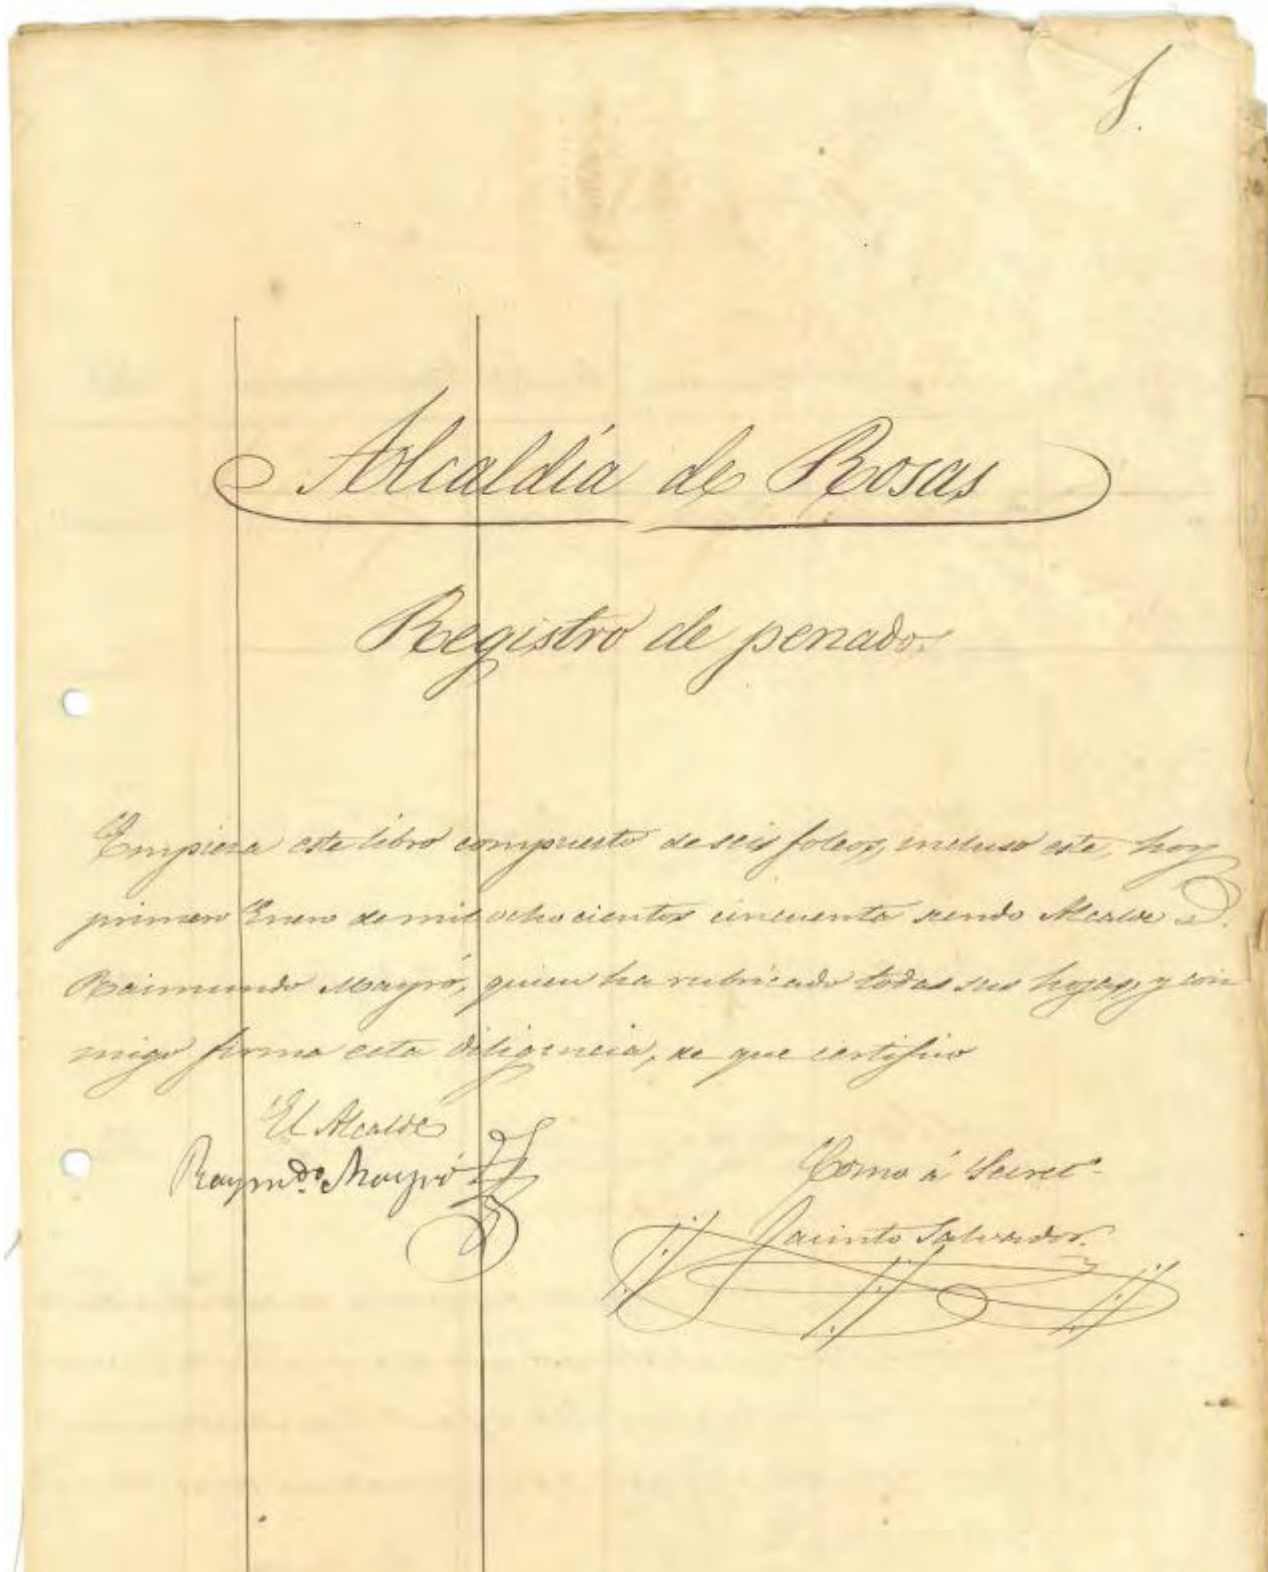 1.
Alcaldía de Rosas
Registro de penados
Empieza este libro compuesto de seis folios, incluso este, hoy
primero Enero de mil ochocientos cincuenta siendo Alcalde D.
Raimundo Mayró, quien ha rubricado todas sus hojas, y con
migo firma esta diligencia, de que certifico
El Alcalde
Raymdo. Mayró
Como á Secreto.
Jacinto Salvador.